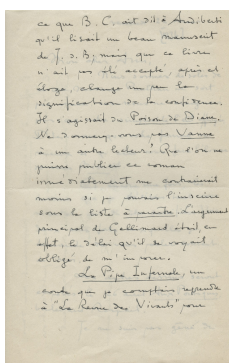 ce que B. C. ait dit à Audiberti
qu'il lisait un beau manuscrit
de J. d. B; mais que ce livre
n'ait pas été accepté, après cet
éloge, change un peu la
signification de la confidence.
Il s'agissait du Poison de Diane.
Ne donnerez-vous pas Vanne
à un autre lecteur? Que l'on ne
puisse publier ce roman
immédiatement me contrarierait
moins si je pouvais l'inscire
sous la liste à paraître. L'argument
principal de Gallimard était, en
effet, le délai qu'il se voyait
obligé de m'imposer.
La Pipe Infernale, un
conte que je comptais reprendre
à "La Revue des Vivants" pour